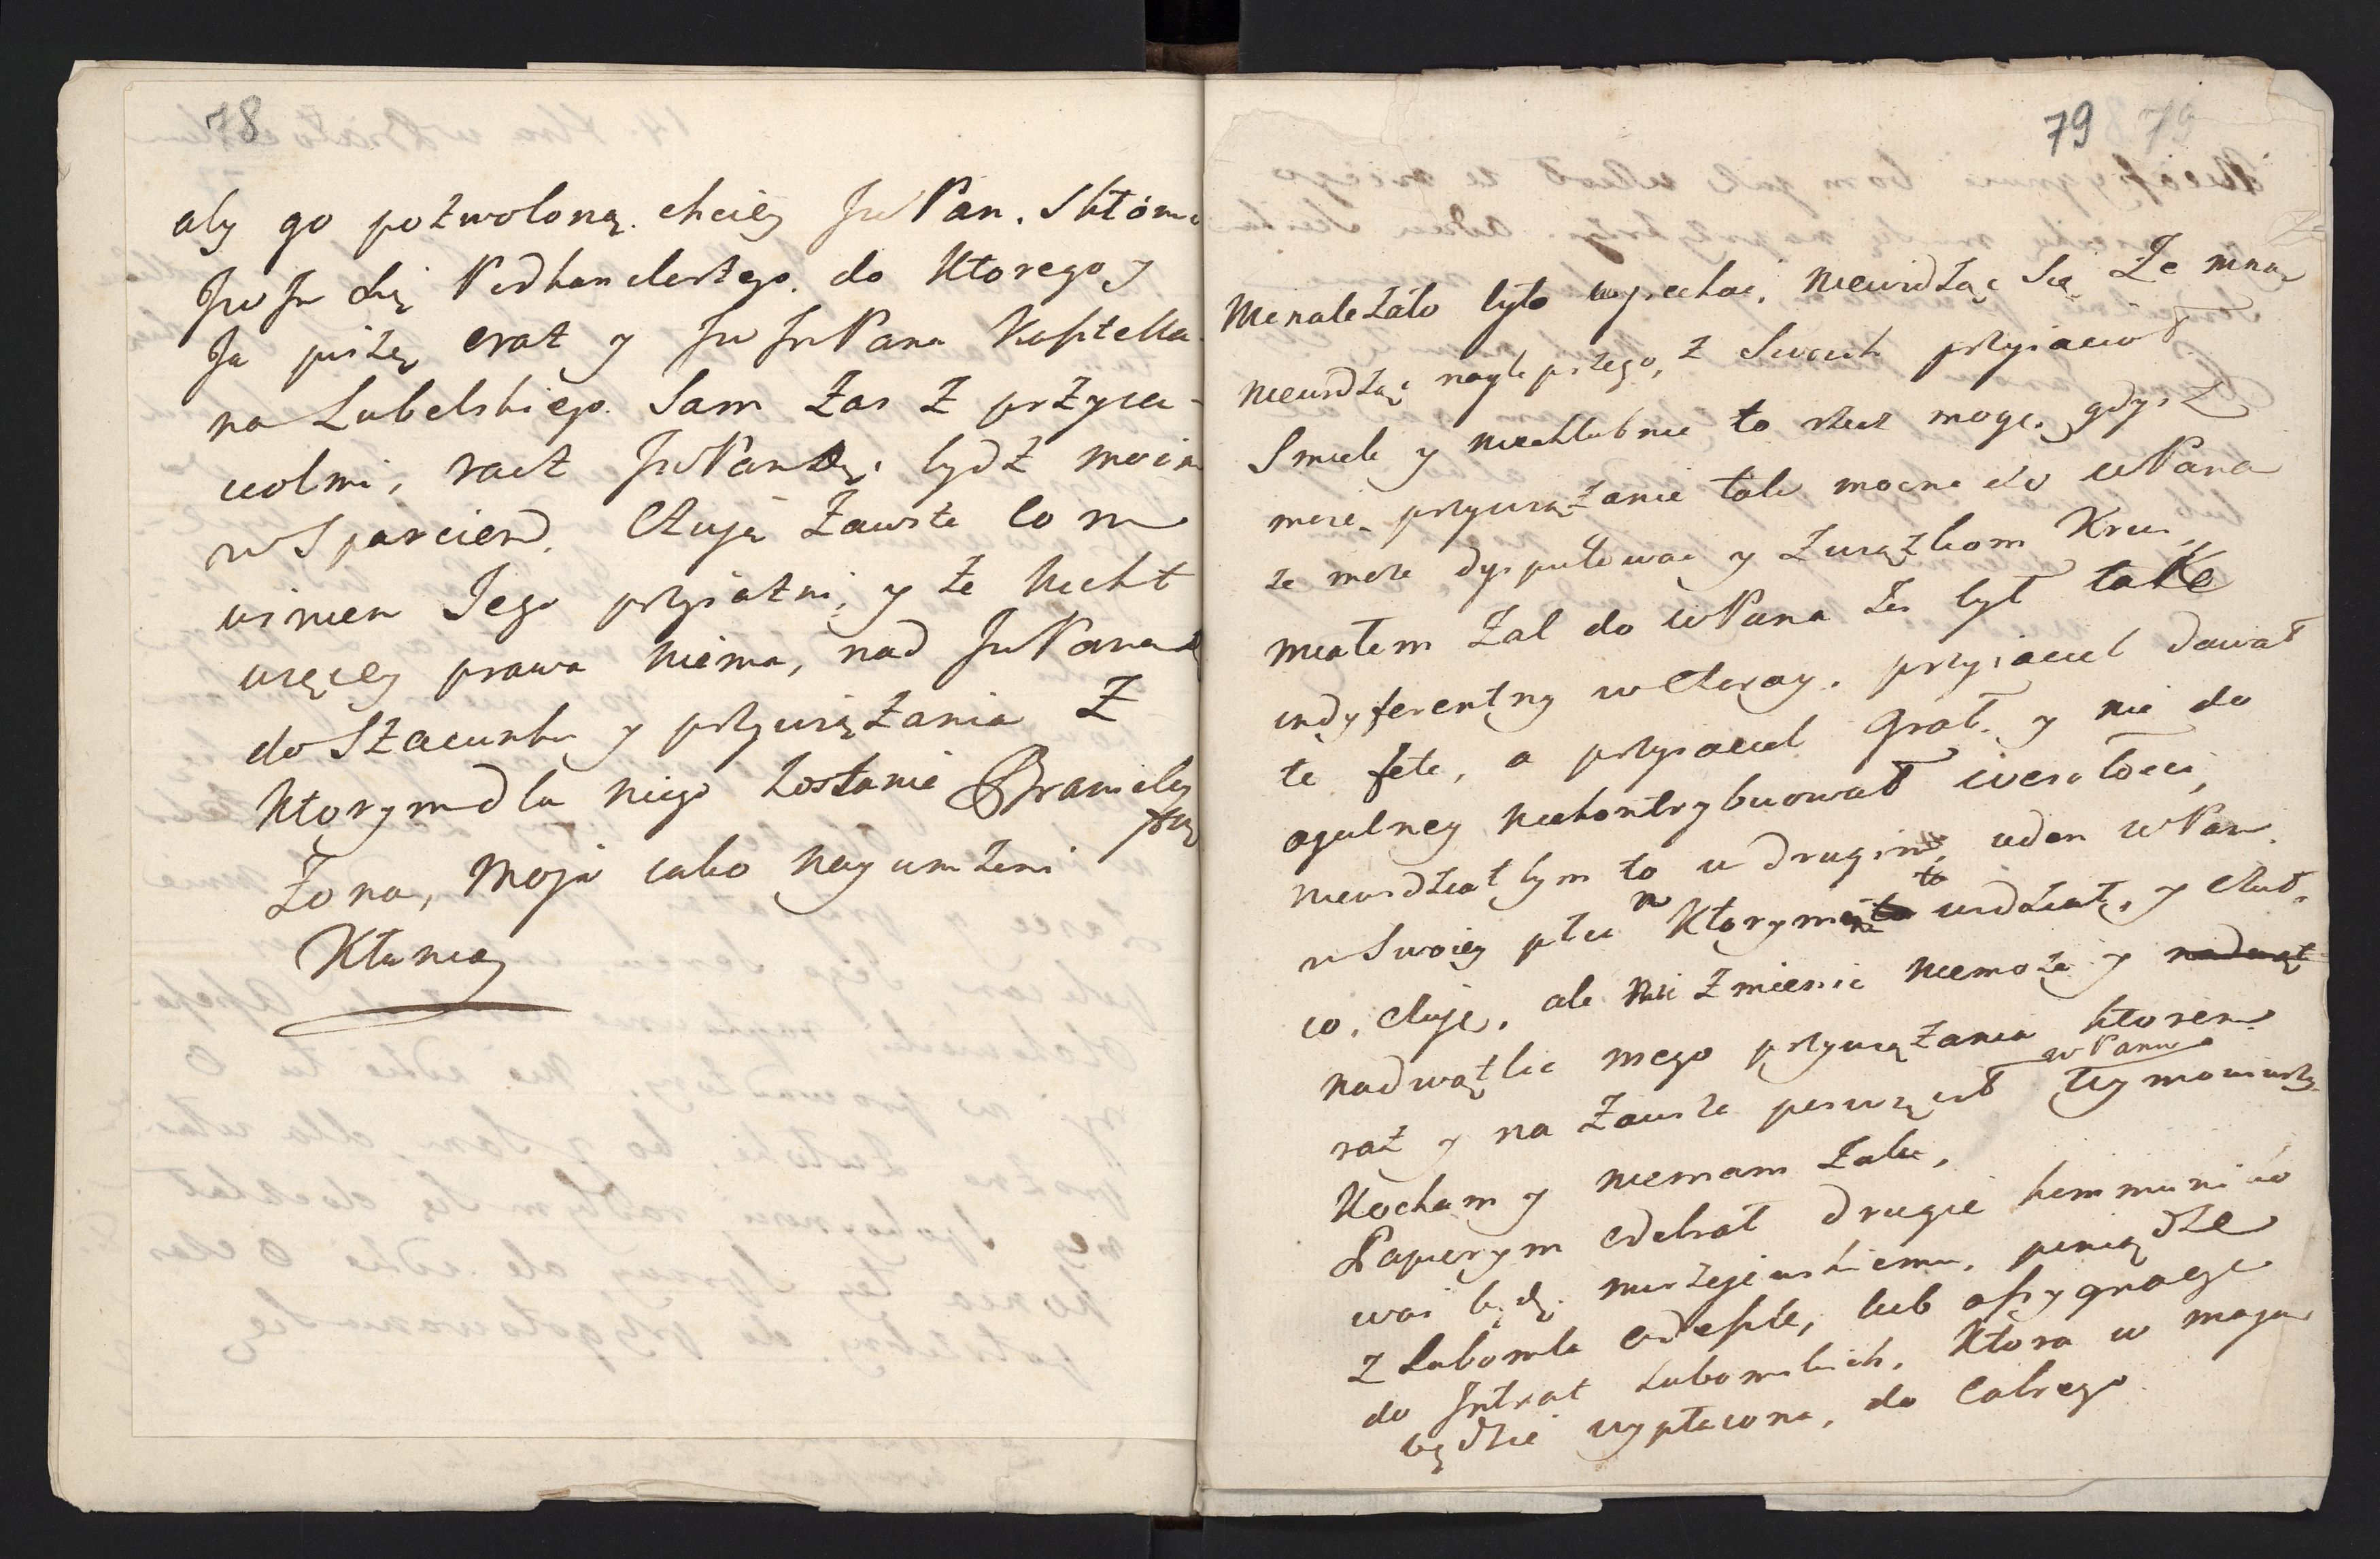 78
aby go pozwoloną. chciey JW Pan. Skłonic
JW Jm Xię Podkanclerzego. do Ktorego y
Ja piszę eraz y JW Jm Pana Kasztella-
na Lubelskiego. Sam zas z przyia-
ciolmi, racz JW Pan bydz moim
w Sparciem. Czuję zawsze co m
winien Jego przyiazni, y ze nicht
więcey prawa niema, nad JW Pana
do Szacunku y przywiązania Z
Ktorym dla niego zostanie Branicky
Zona, moja iako nayunizeni
Kłania
79
Nienalezało było wyiechac, niewidząc Się Ze mną
niewidząc naylepszego, z Swoich przyiacioł
Smiele y niechlubnie to rzec mogę. gdysz
moie przywiązanie tak mocne do WPana
ze moze dysputowac y Związkom Krwi,
miałem Zal do WPana zes był take
indyferentny wczoray. przyiaciel dawał
te fete, a przyiaciel grał. y nie do
ogulney niekontrybuował wesołosci,
niewidział bym to w drugim, ieden WPan.
w Swoiey płci w Ktorym to widział, y czuł.
co, czuję, ale nic zmienic niemoze y nadwąt
nadwątlic mego przywiązania ktorem
raz y na zawsze poswięcił WPanu
Kocham y niemam zalu,
Papierym odebrał drugie kommuniko
wac będę. mierzejewskiemu, pieniądze
z Lubomla odeszle, lub assygnacye
do Intrat Lubomlskich, Ktora w maju
będzie wypłacona, do Całego